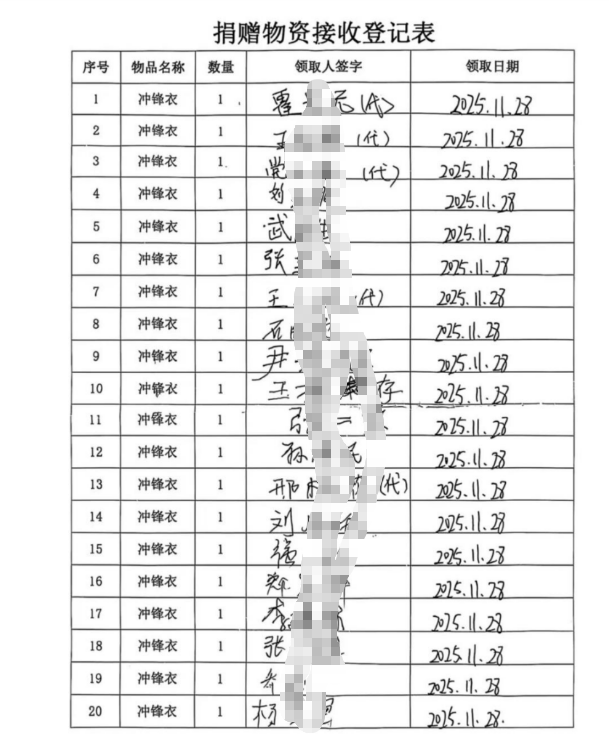 捐赠物资接收登记表
序号 物品名称 数量 领取人签字 领取日期
1 冲锋衣 1 (代) 2025.11.28
2 冲锋衣 1 王 (代) 2025.11.28
3 冲锋衣 1 (代) 2025.11.28
4 冲锋衣 1 刘 2025.11.28
5 冲锋衣 1 武 2025.11.28
6 冲锋衣 1 张 2025.11.28
7 冲锋衣 1 王 (代) 2025.11.28
8 冲锋衣 1 石 2025.11.28
9 冲锋衣 1 尹 2025.11.28
10 冲锋衣 1 王 存 2025.11.28
11 冲锋衣 1 2025.11.28
12 冲锋衣 1 孙 民 2025.11.28
13 冲锋衣 1 邢 (代) 2025.11.28
14 冲锋衣 1 刘 2025.11.28
15 冲锋衣 1 2025.11.28
16 冲锋衣 1 2025.11.28
17 冲锋衣 1 李 2025.11.28
18 冲锋衣 1 张 2025.11.28
19 冲锋衣 1 2025.11.28
20 冲锋衣 1 杨 2025.11.28.